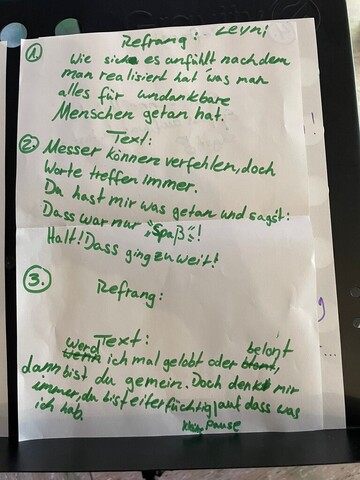 Refrang: Levni
1.
Wie sich es anfühlt nachdem
man realisiert hat was man
alles für undankbare
Menschen getan hat.
Text:
2. Messer können verfehlen, doch
Worte treffen immer.
Du hast mir was getan und sagst:
Dass war nur "Spaß"!
Halt! Dass ging zu weit!
3.
Refrang:
Text:
Werd ich mal gelobt oder belont
dann bist du gemein. Doch denk mir
immer, du bist eiferfüchtig auf dass was
ich hab.
Pause